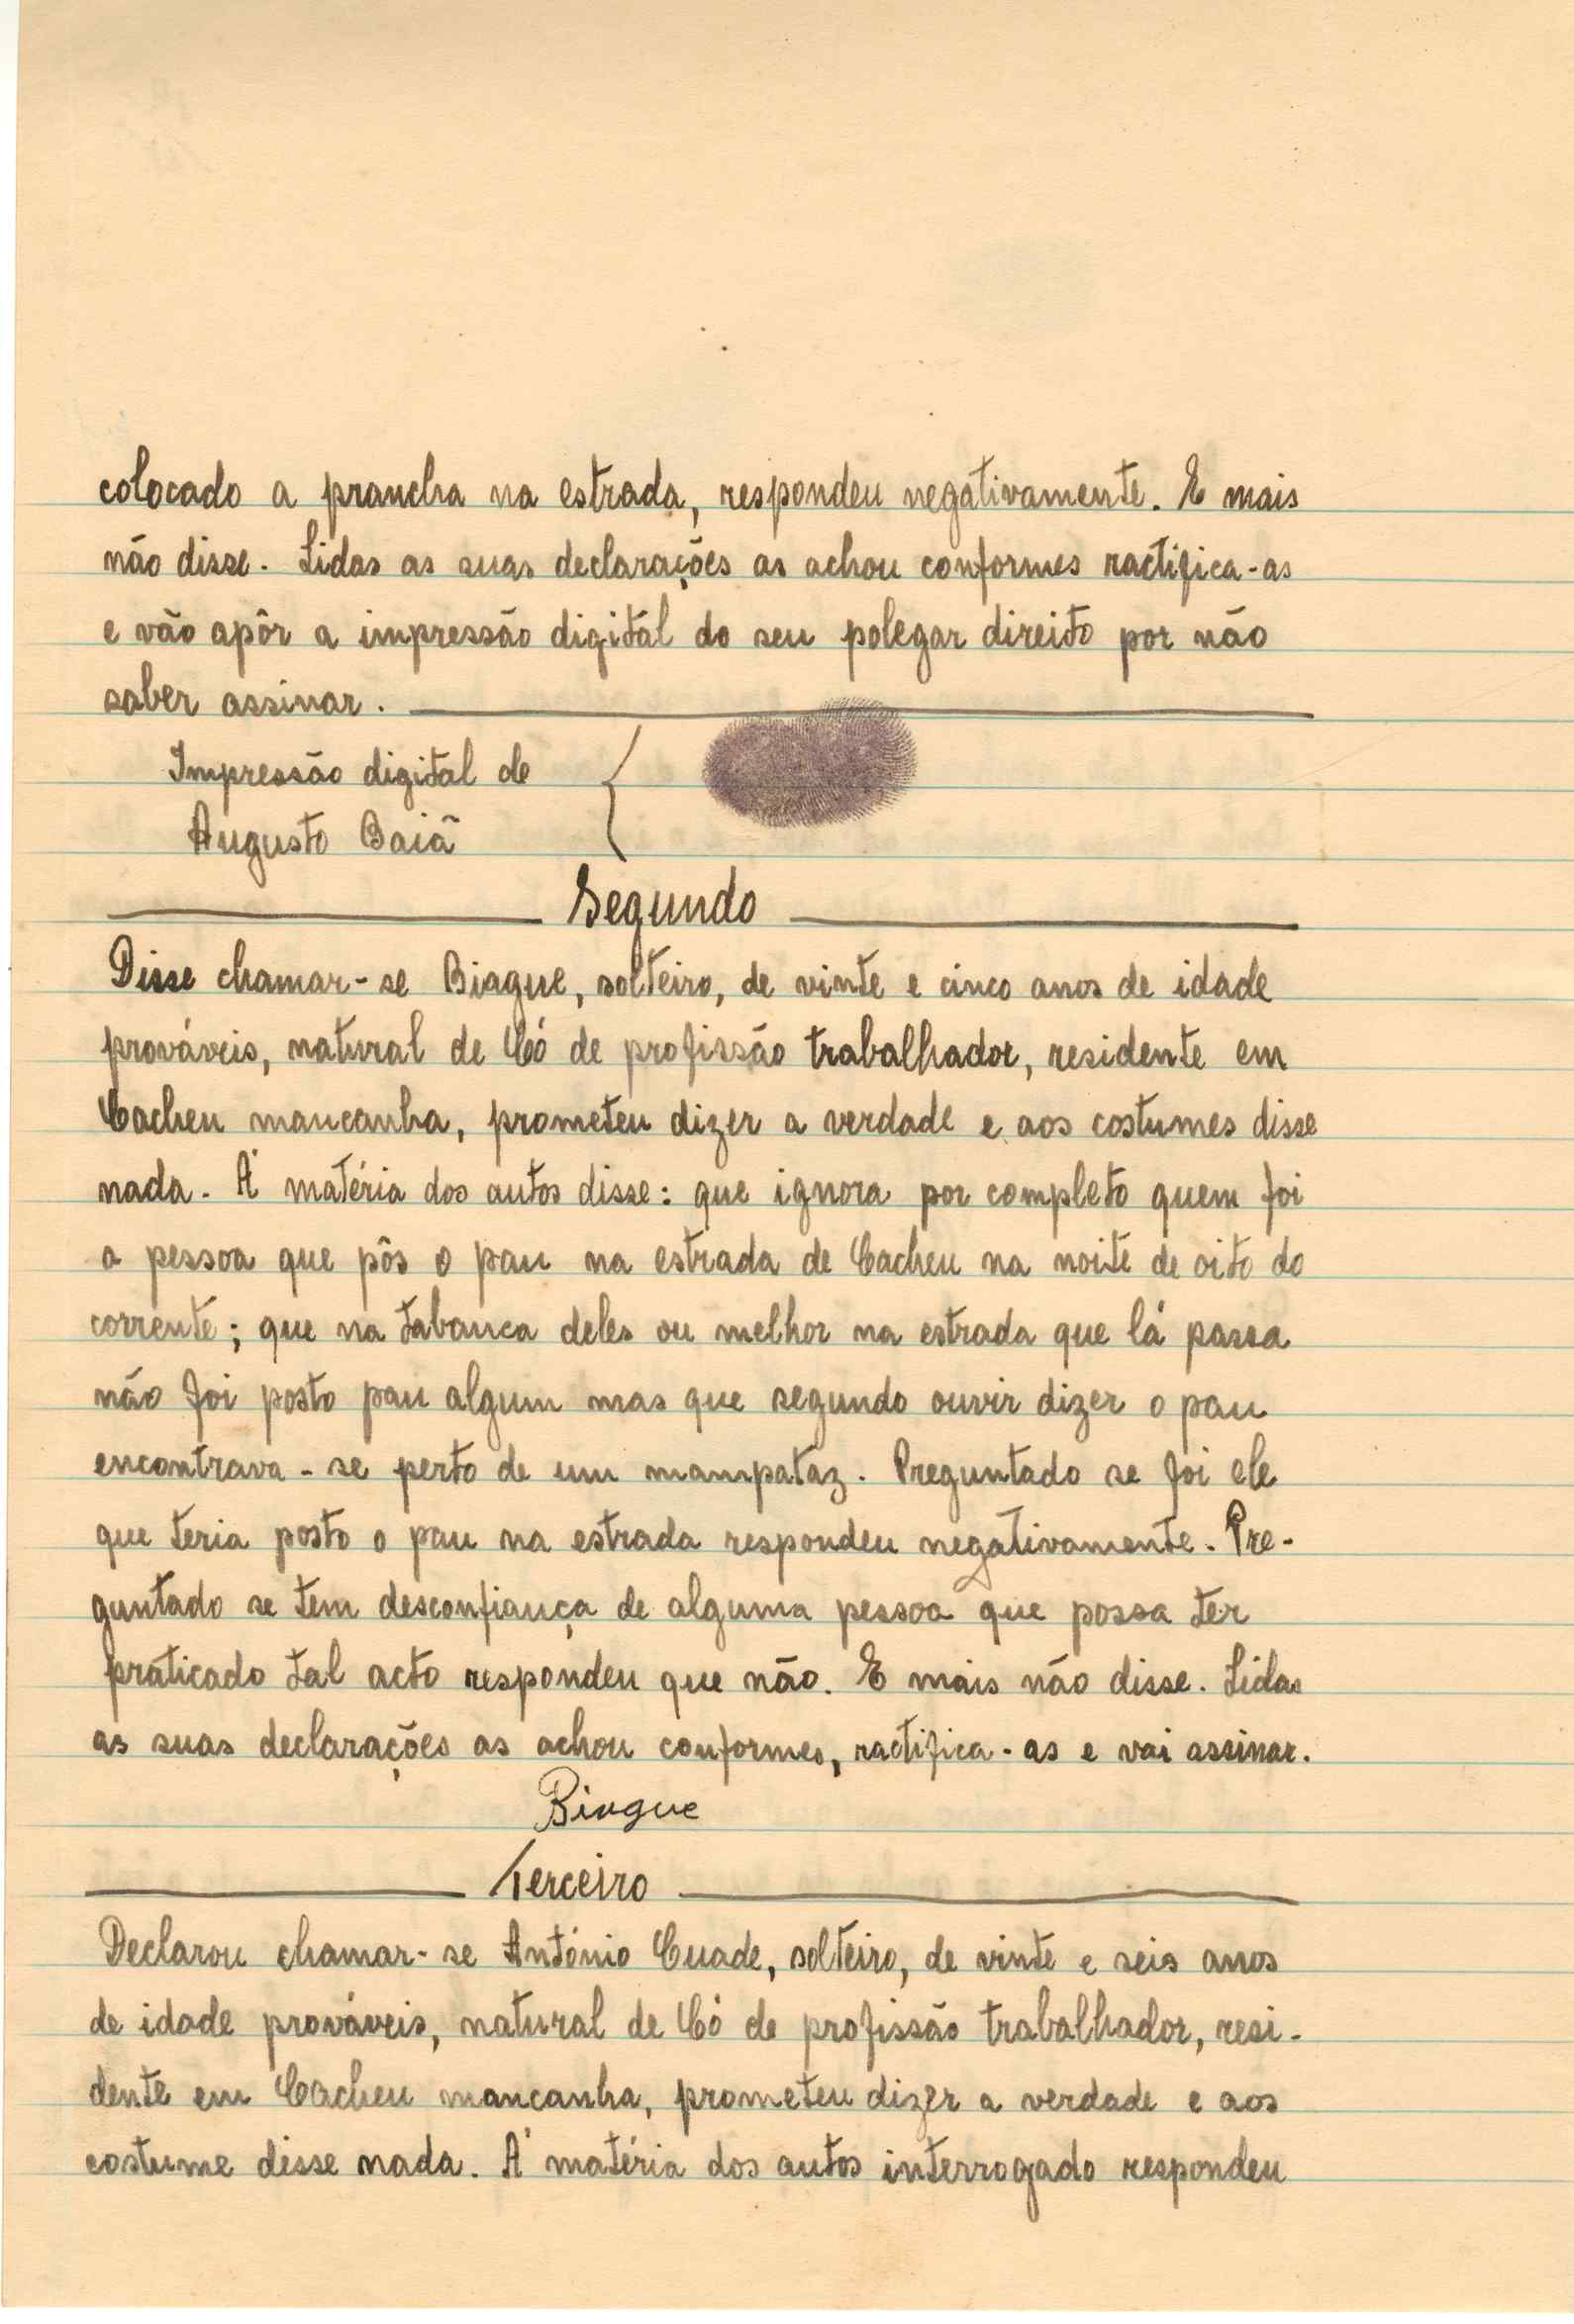 colocado a prancha na estrada, respondeu negativamente. E mais
não disse. Lidas as suas declarações as achou conformes ractifica-as
e vão apôr a impressão digital do seu polegar direito por não
saber assinar.
Impressão digital de
Augusto Baiã
Segundo
Disse chamar-se Biague, solteiro, de vinte e cinco anos de idade
prováveis, natural de Có de profissão trabalhador, residente em
Cacheu mancanha, prometeu dizer a verdade e aos costumes disse
nada. Á matéria dos autos disse: que ignora por completo quem foi
a pessoa que pôs o pau na estrada de Cacheu na noite de oito do
corrente; que na tabanca deles ou melhor na estrada que lá passa
não foi posto pau algum mas que segundo ouvir dizer o pau
encontrava-se perto de um mampataz. Preguntado se foi ele
que teria posto o pau na estrada respondeu negativamente. Pre-
guntado se tem desconfiança de alguma pessoa que possa ter
praticado tal acto respondeu que não. E mais não disse. Lidas
as suas declarações as achou conformes, ractifica-as e vai assinar.
Biague
Terceiro
Declarou chamar-se António Cuade, solteiro, de vinte e seis anos
de idade prováveis, natural de Có de profissão trabalhador, resi-
dente em Cacheu mancanha, prometeu dizer a verdade e aos
costume disse nada. Á matéria dos autos interrogado respondeu